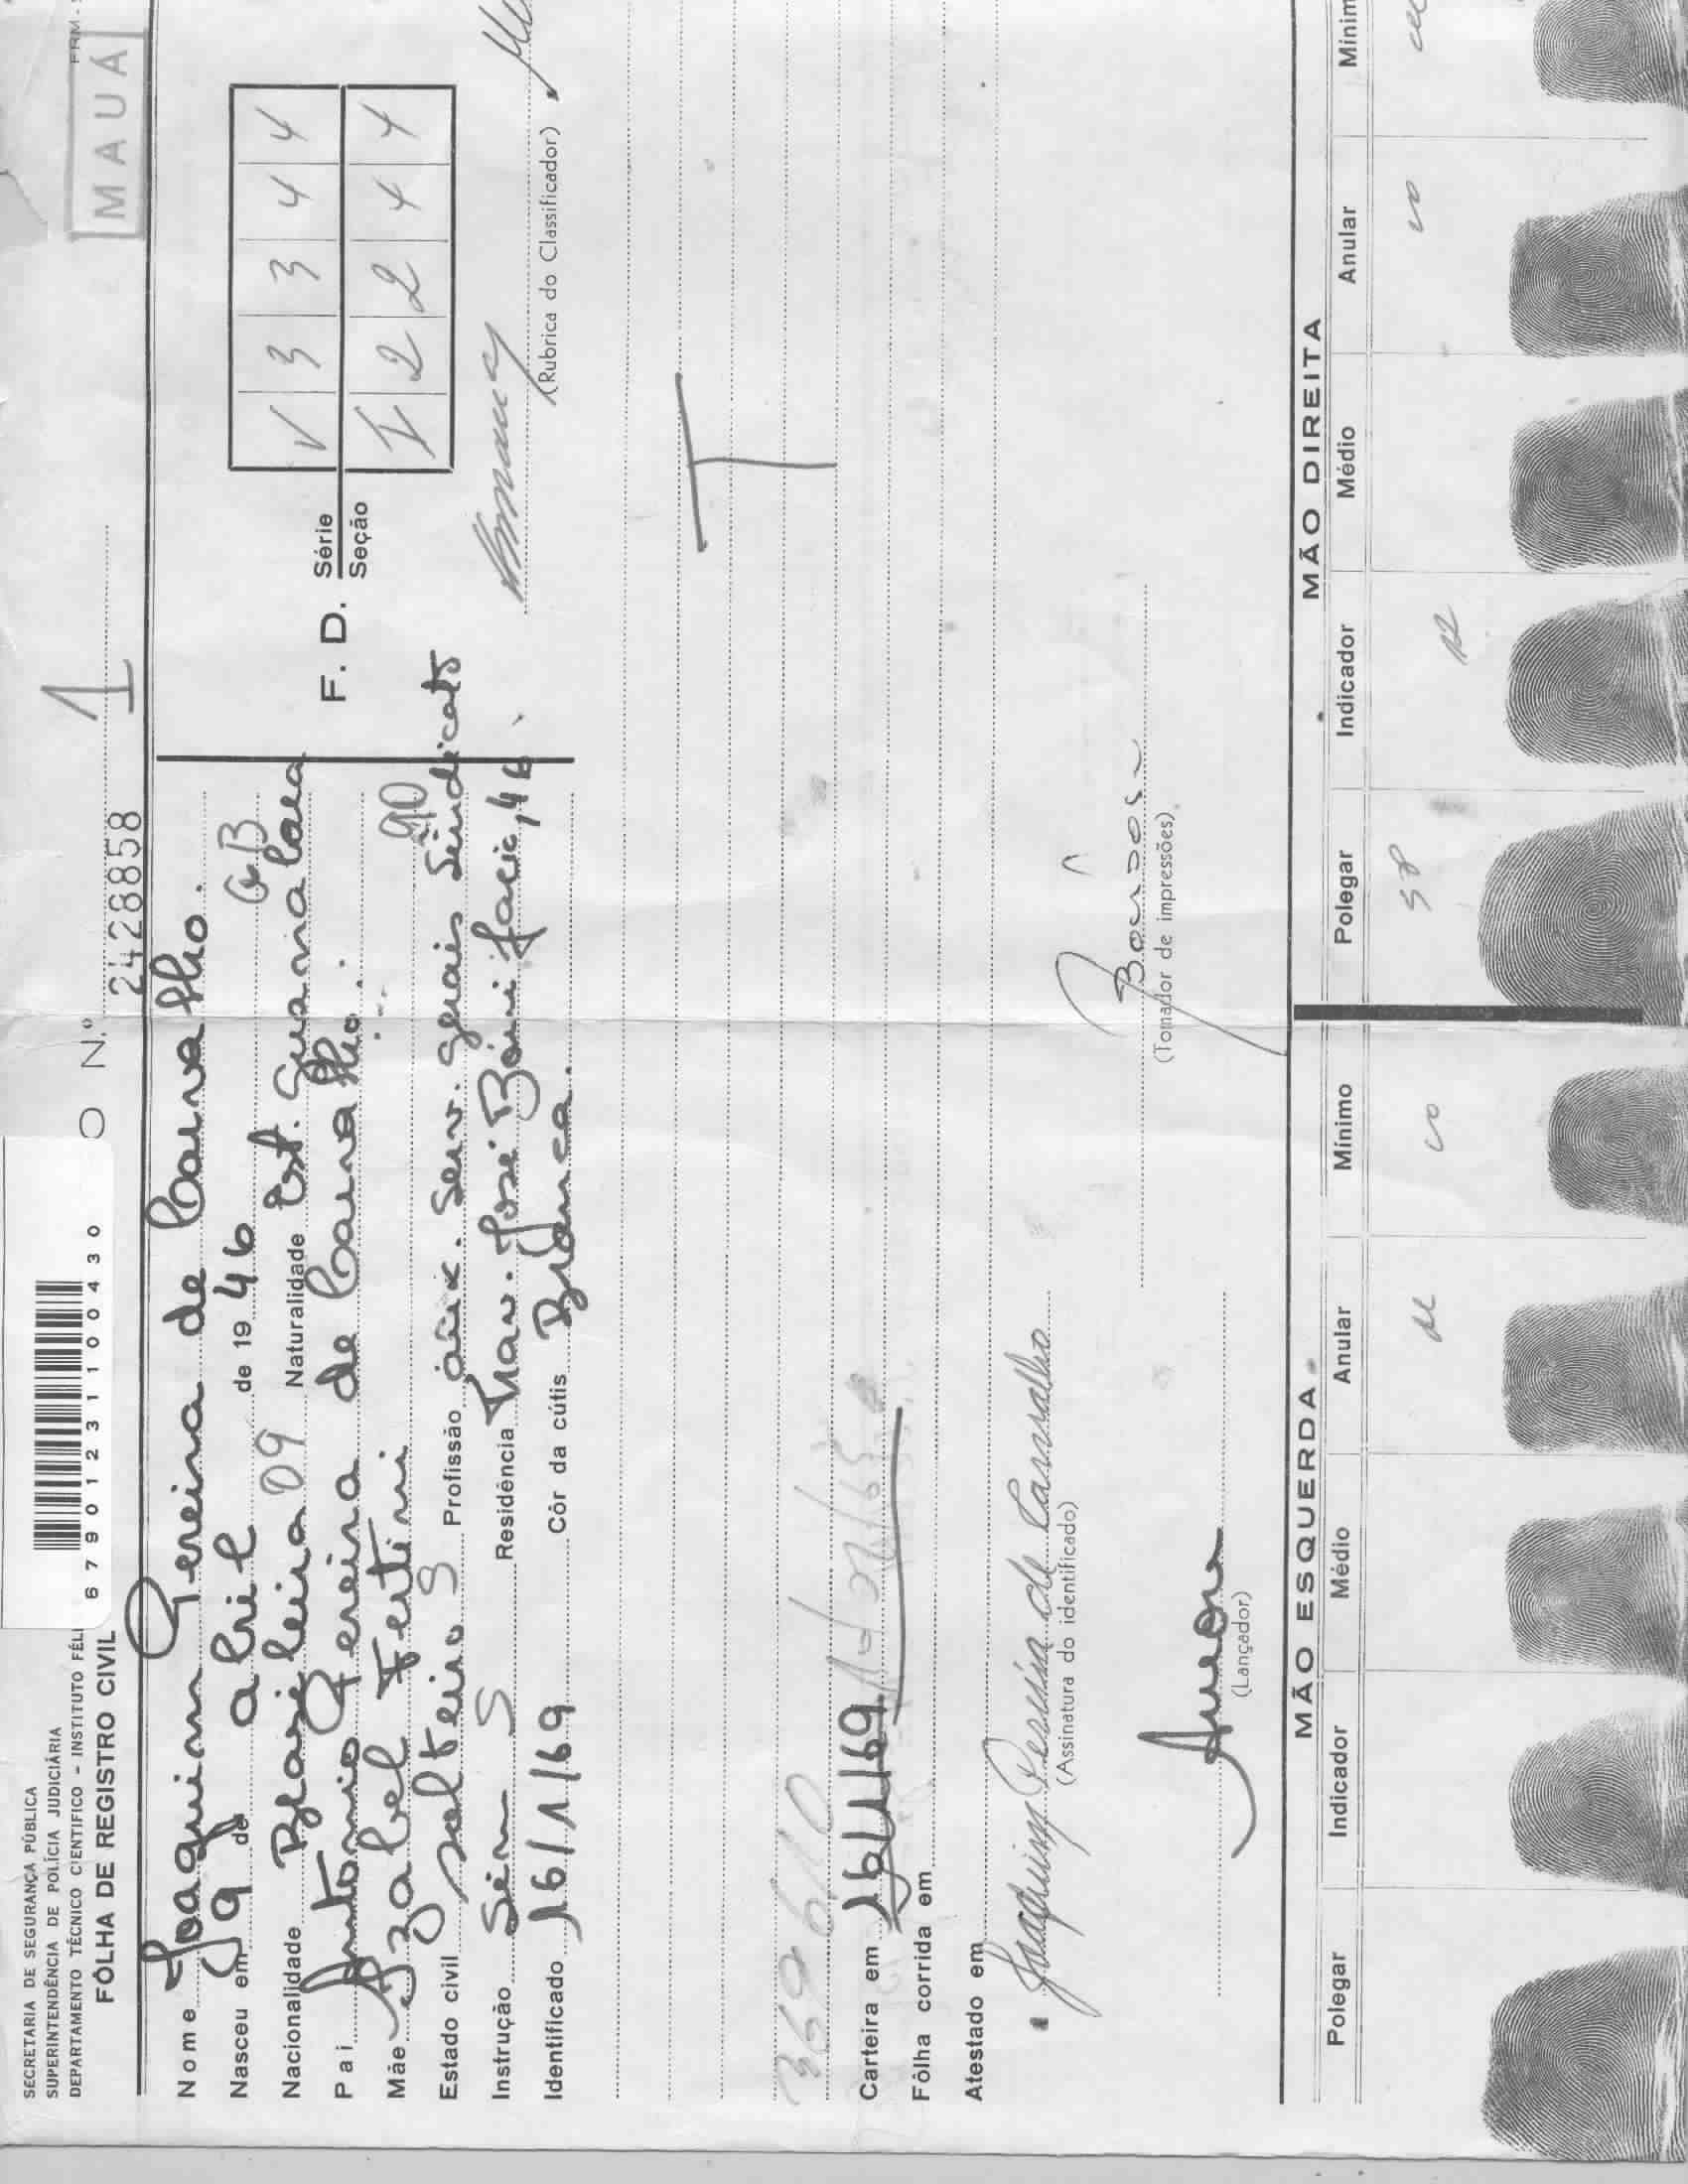 SECRETARIA DE SEGURANÇA PÚBLICA
SUPERINTENDÊNCIA DE POLÍCIA JUDICIÁRIA
DEPARTAMENTO TÉCNICO CIENTIFICO - INSTITUTO FÉLI
FÔLHA DE REGISTRO CIVIL
67901231100430
O N.º 2428858
1
MAUÁ
Nome Joaquim Pereira de Carvalho.
Nasceu em 19 de abril de 19 46 GB
Nacionalidade Brasileira 09 Naturalidade Est. Guanabara
Pai Antonio Pereira de Carvalho.
Mãe Izabel Fertini 90
Estado civil solteiro S Profissão aux. serv. gerais Sindicato
Instrução Sim S Residência Trav. José Bonifacio, 46.
Identificado 16/1/69 Côr da cútis Branca.
F. D. Série V 3 3 4 4
Seção I 2 2 4 4
(Rubrica do Classificador)
Carteira em 16/1/69
Fôlha corrida em
Atestado em
Joaquim Pereira de Carvalho
(Assinatura do identificado)
(Tomador de impressões)
(Lançador)
MÃO ESQUERDA MÃO DIREITA
Polegar Indicador Médio Anular Mínimo Polegar Indicador Médio Anular Mínim